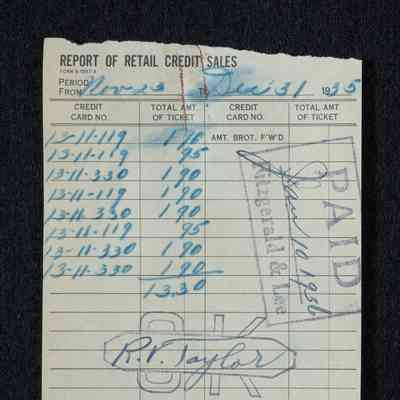 REPORT OF RETAIL CREDIT SALES
PERIOD
FROM Nov 23 TO Dec 31 1935
CREDIT CARD NO. TOTAL AMT OF TICKET CREDIT CARD NO. TOTAL AMT OF TICKET
13-11-119 1 90 AMT. BROT. F'W'D
13-11-119 95
13-11-330 1 90
13-11-119 1 90
13-11-330 1 90
13-11-119 95
13-11-330 1 90
13-11-330 1 90
13.30
PAID
Jan 10 1936
Fitzgerald & Lee
OK
R.V. Taylor